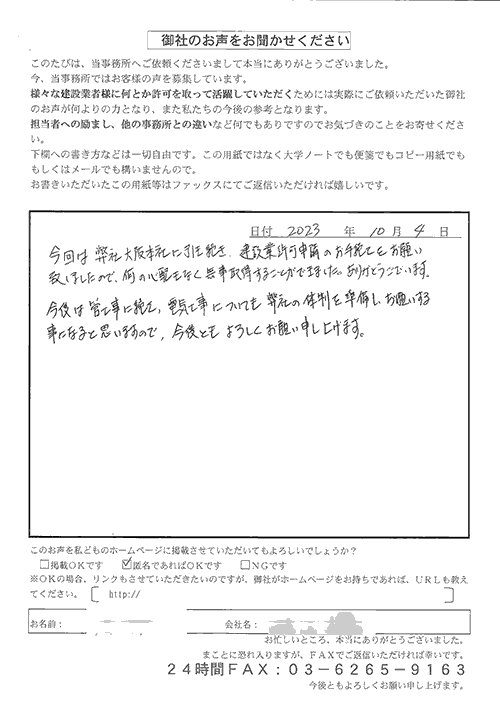 御社のお声をお聞かせください
このたびは、当事務所へご依頼くださいまして本当にありがとうございました。
今、当事務所ではお客様の声を募集しています。
様々な建設業者様に何とか許可を取って活躍していただくためには実際にご依頼いただいた御社
のお声が何よりの力となり、また私たちの今後の参考となります。
担当者への励まし、他の事務所との違いなど何でもありですのでお気づきのことをお寄せくださ
い。
下欄への書き方などは一切自由です。この用紙ではなく大学ノートでも便箋でもコピー用紙でも
もしくはメールでも構いませんので。
お書きいただいたこの用紙等はファックスにてご返信いただければ嬉しいです。
日付 2023 年 10 月 4 日
今回は 弊社大阪本社に引き続き、建設業許可申請のお手続をお願い
致しましたので、何の心配もなく無事取得することができました。ありがとうございます。
今後は 管工事に続き、電気工事についても弊社の体制を準備し、お願いする
事になると思いますので、今後ともよろしくお願い申し上げます。
このお声を私どものホームページに掲載させていただいてもよろしいでしょうか？
□掲載OKです ☑匿名であればOKです □NGです
※OKの場合、リンクもさせていただきたいのですが、御社がホームページをお持ちであれば、URLも教え
てください。［ http:// ］
お名前： 会社名：
お忙しいところ、本当にありがとうございました。
まことに恐れ入りますが、FAXでご返信いただければ幸いです。
24時間FAX：03-6265-9163
今後ともよろしくお願い申し上げます。